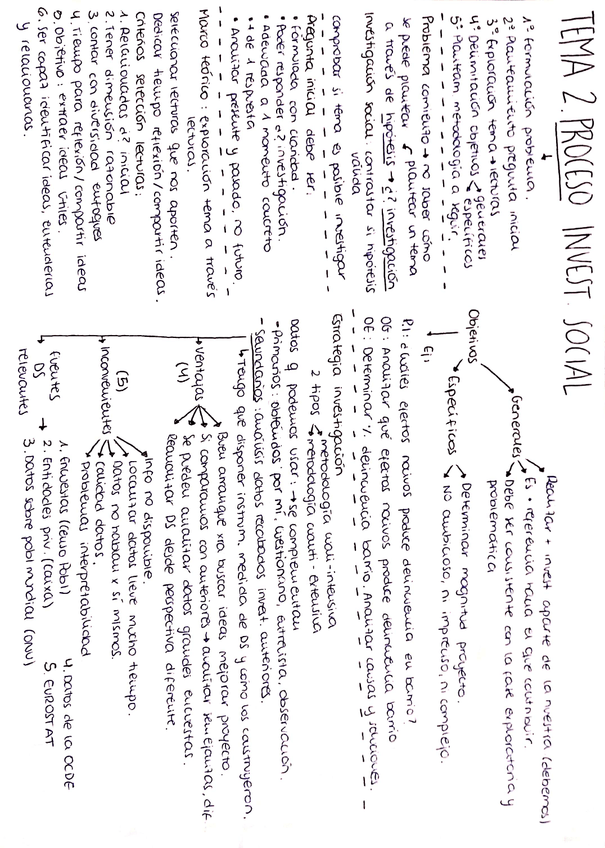 TEMA 2. PROCESO INVEST. SOCIAL
1º Formulación problema.
2º Planteamiento pregunta inicial
3º Exploración tema → lecturas
4º Delimitación objetivos < generales
específicos
5º Plantean metodología a seguir.
Problema comienzo → no saber cómo
se puede plantear plantear un tema
a través de hipótesis → ¿? investigación
válida
Investigación social: contrastar si hipótesis
comprobar si tema es posible investigar
Pregunta inicial debe ser:
• Formulada con claridad.
• Poder responder ¿? investigación.
• Adecuada a 1 momento concreto
• +1 de 1 respuesta
• Analizar presente y pasado, no futuro.
Marco teórico: exploración tema a través
lecturas.
Seleccionar lecturas que nos aporten.
Dedicar tiempo reflexión/compartir ideas.
Criterios selección lecturas:
1. Relacionados ¿? inicial
2. Tener dimensión razonable
3. Contar con diversidad enfoques
4. Tiempo para reflexión/compartir ideas
5. Objetivo: extraer ideas útiles.
6. Ser capaz identificar ideas, entenderlas
y relacionarlas.
Objetivos
Generales
Realizar + invest aparte de la nuestra (debemos)
Es + referencia hacia el que contribuir.
Debe ser consistente con la fase exploratoria y
problemática
Específicos
Determinar magnitud proyecto.
No ambicioso, ni impreciso, ni complejo.
Ej:
P.I: ¿Cuáles efectos nocivos produce delincuencia en barrio?
OG: Analizar qué efectos nocivos produce delincuencia barrio
OE: Determinar % delincuencia barrio. Analizar causas y soluciones.
Estrategia investigación
2 tipos < metodología cuali-intensiva
metodología cuanti-extensiva
Datos q podemos usar: → se complementan
- Primarios: obtenidos por mi, cuestionario, entrevista, observación.
- Secundarios: análisis datos recabados invest. anteriores.
Tengo que disponer instrum, medida de DS y como los construyeron.
Ventajas
(4)
Buen arranque xra buscar ideas mejorar proyecto.
Si comparamos con anteriores → analizar semejanzas, dif.
Se pueden analizar datos grandes encuestas.
Reanalizar DS desde perspectiva diferente.
Inconvenientes
(5)
Info no disponible.
Localizar datos lleve mucho tiempo.
Datos no hablan x si mismos.
Calidad datos.
Problemas interpretabilidad
Fuentes DS relevantes →
1. Encuestas (Censo Pobl)
2. Entidades priv. (Caixa)
3. Datos sobre pobl mundial (ONU)
4. Datos de la OCDE
5. EUROSTAT